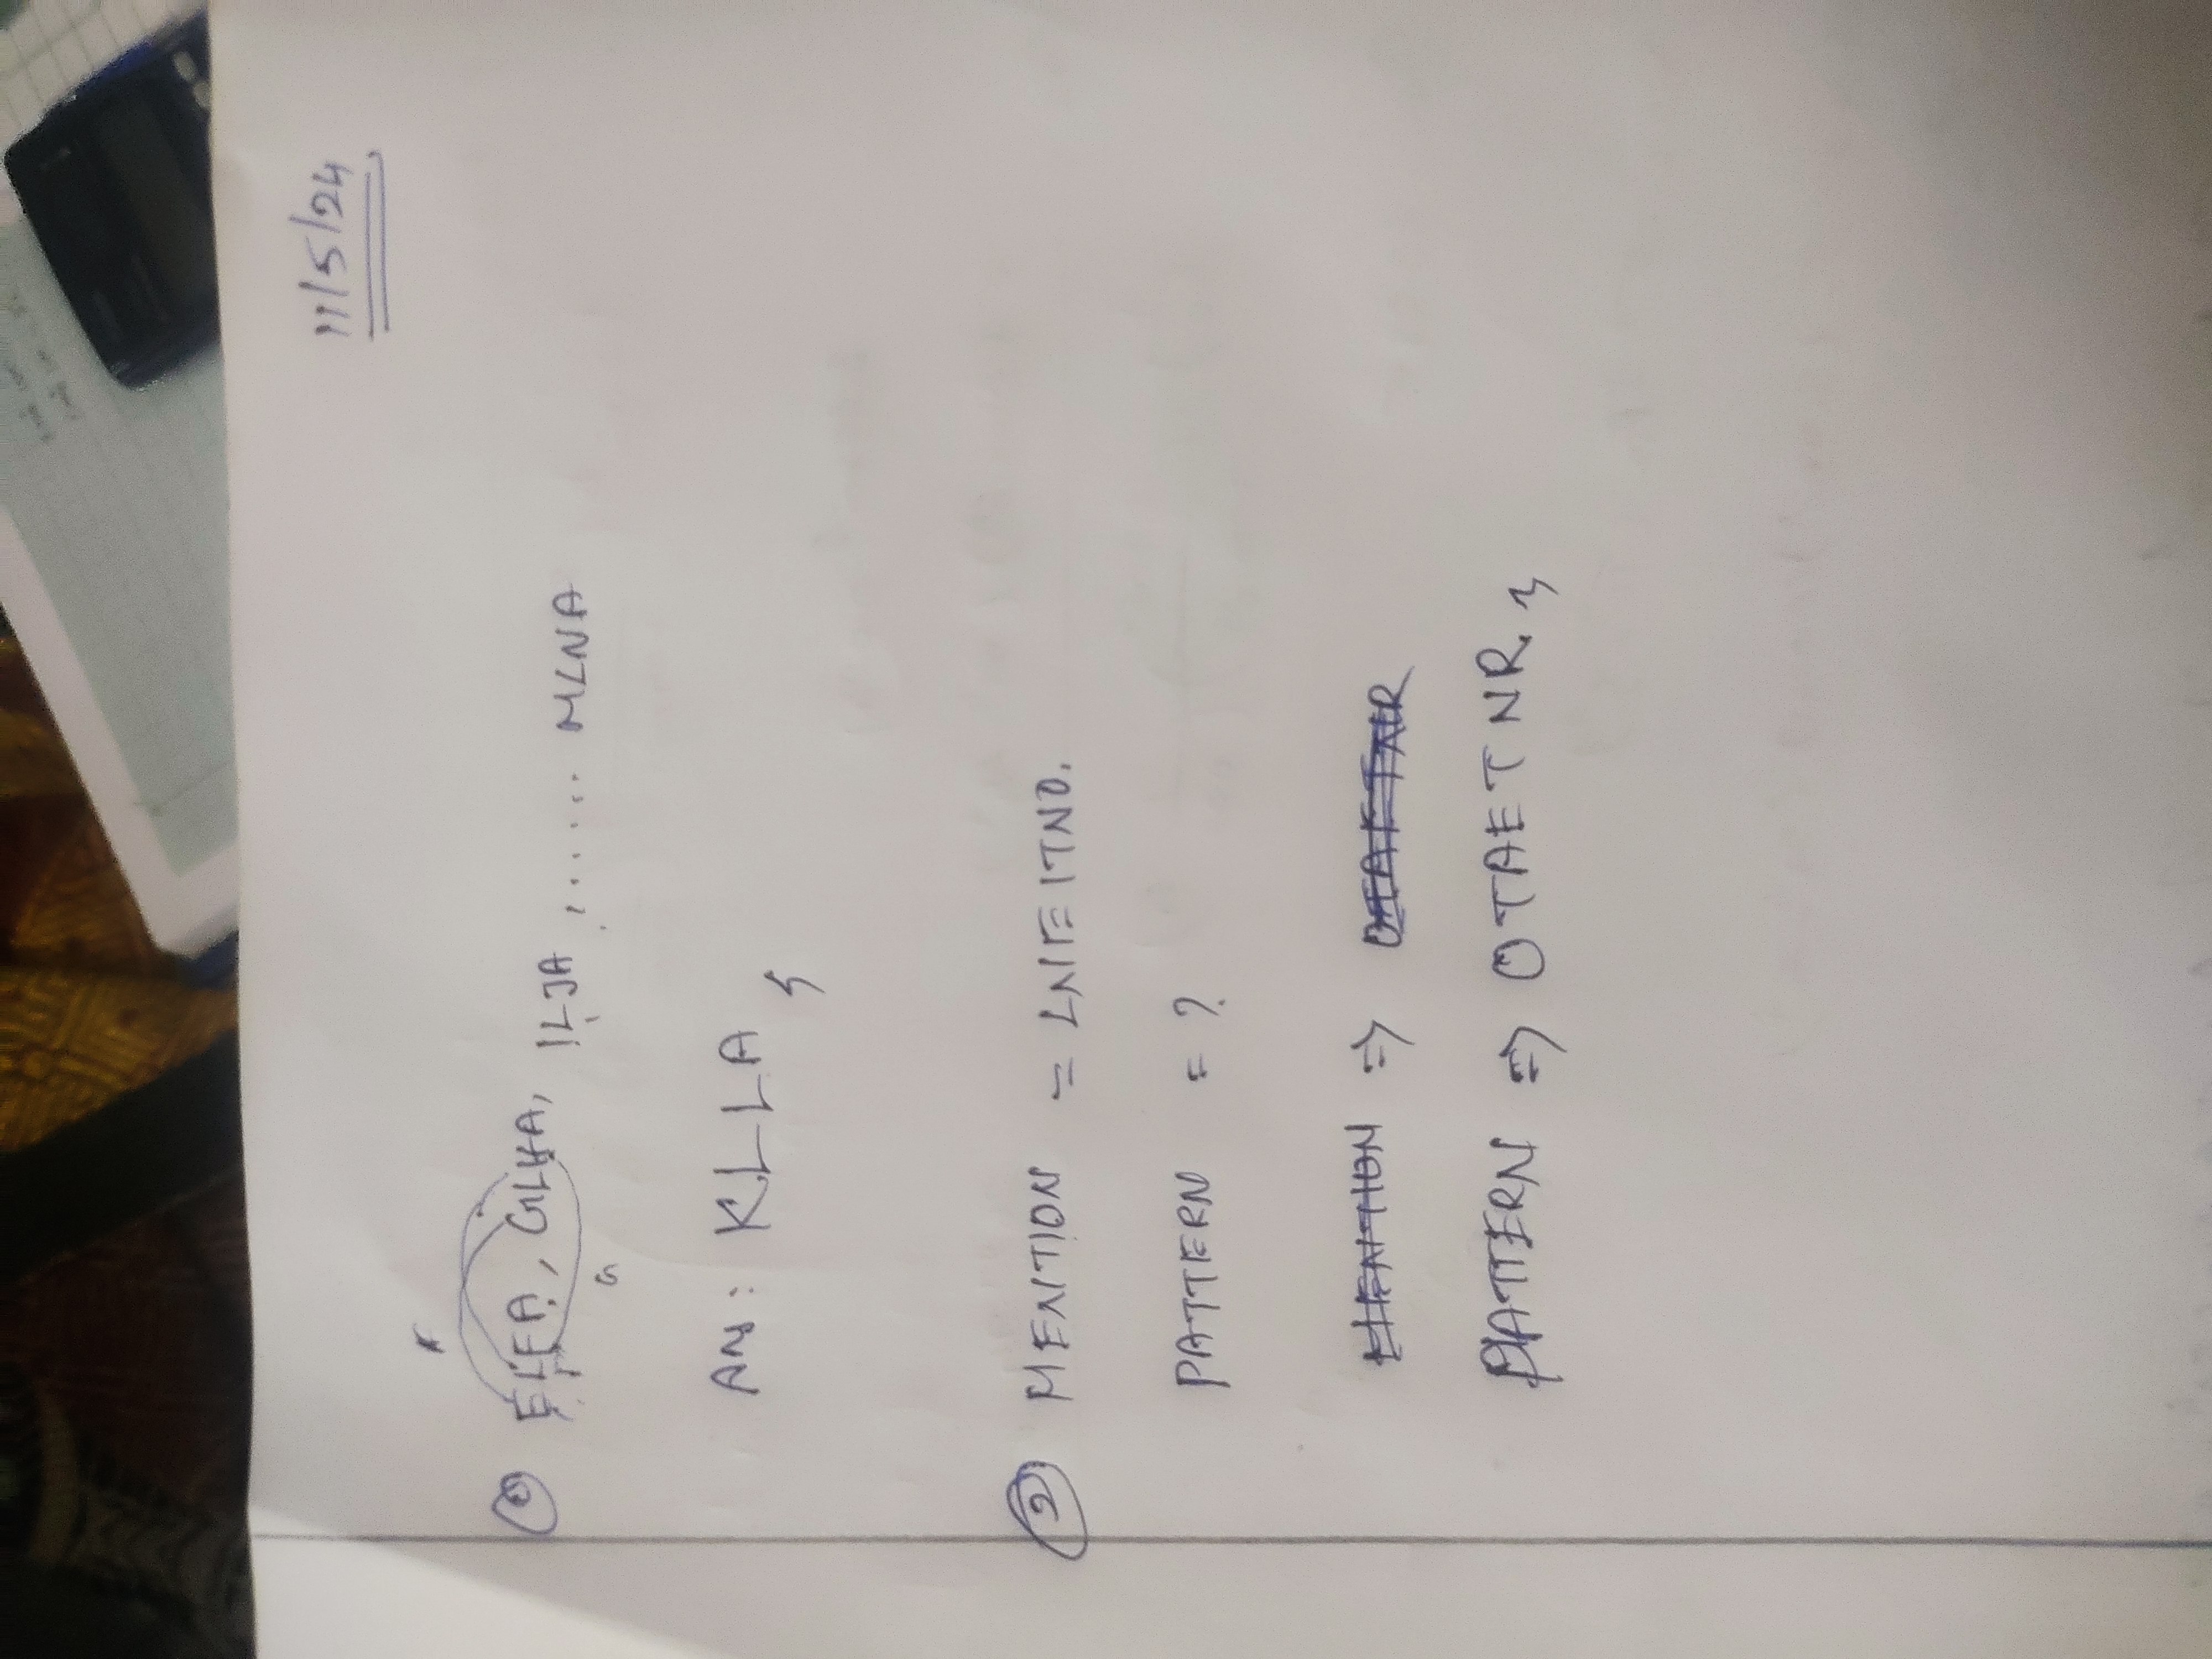 11/5/24
① ELFA, GLHA, ILJA, ...... MLNA
G
Ans: KLLA
② MENTION = LNEITNO.
PATTERN = ?
MENTION ⇒ OTAETNR
PATTERN ⇒ OTAETNR